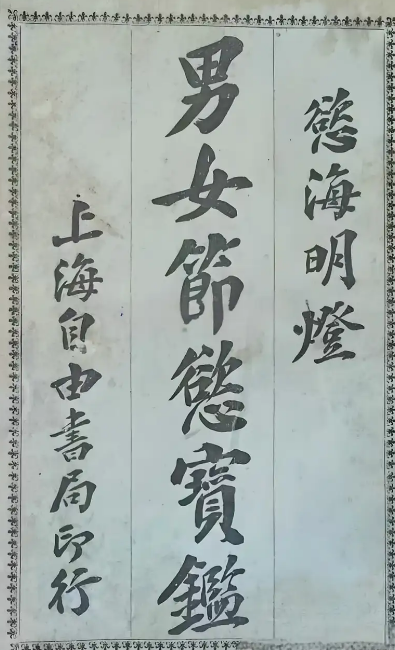 慾海明燈
男女節慾寶鑑
上海自由書局印行